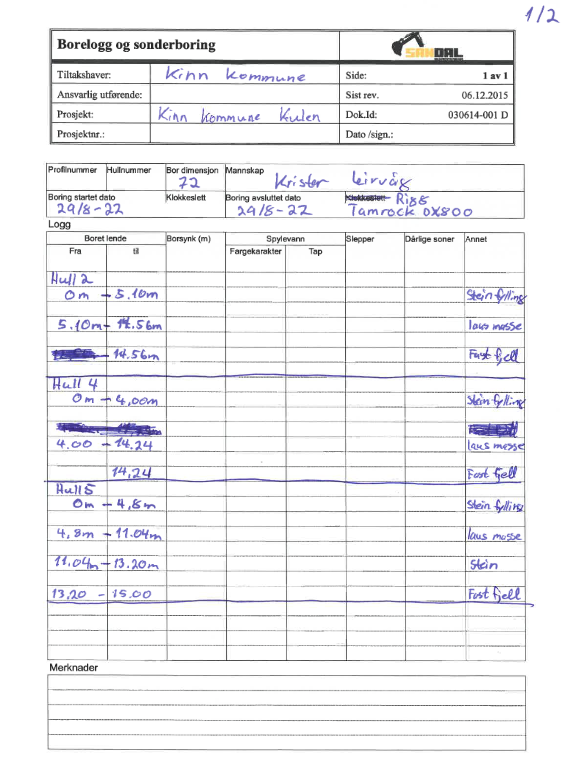 1/2
Borelogg og sonderboring
SANDAL
Tiltakshaver: Kinn Kommune Side: 1 av 1
Ansvarlig utførende: Sist rev. 06.12.2015
Prosjekt: Kinn Kommune Kulen Dok.Id: 030614-001 D
Prosjektnr.: Dato /sign.:
Profilnummer Hullnummer Bor dimensjon Mannskap
72 Krister Leirvåg
Boring startet dato Klokkeslett Boring avsluttet dato Klokkeslett Rigg
29/8-22 29/8-22 Tamrock DX800
Logg
Boret lende Borsynk (m) Spylevann Slepper Dårlige soner Annet
Fra til Fargekarakter Tap
Hull 2
0m - 5.10m Stein fylling
5.10m - 14.56m laus masse
14.56m Fast fjell
Hull 4
0m - 4,00m Stein fylling
4.00 - 14.24 laus masse
14,24 Fast fjell
Hull 5
0m - 4,8m Stein fylling
4,8m - 11.04m laus masse
11.04m - 13.20m Stein
13,20 - 15.00 Fast fjell
Merknader